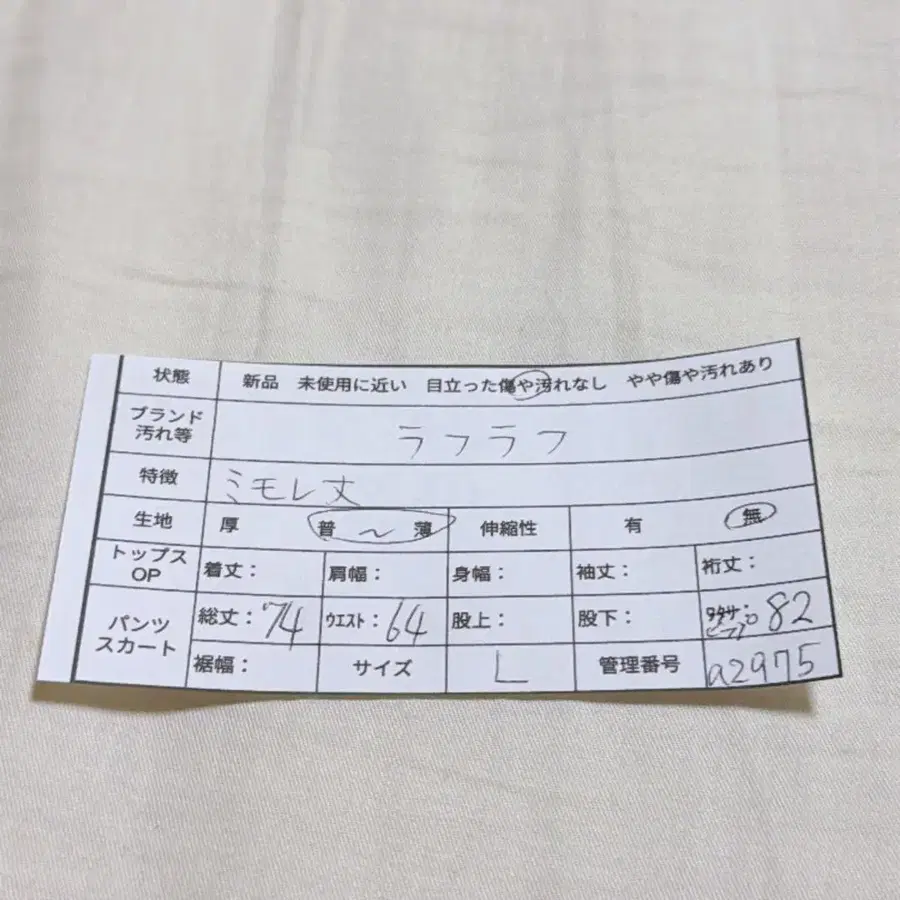 状態 新品 未使用に近い 目立った傷や汚れなし やや傷や汚れあり
ブランド
汚れ等 ラフラフ
特徴 ミモレ丈
生地 厚 普 〜 薄 伸縮性 有 無
トップス
OP 着丈： 肩幅： 身幅： 袖丈： 裄丈：
パンツ
スカート 総丈：74 ウエスト：64 股上： 股下： ヒップ 82
裾幅： サイズ L 管理番号 a2975